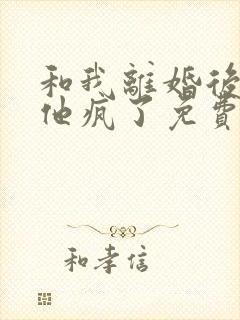 和我離婚後
他瘋了免費
和孝信